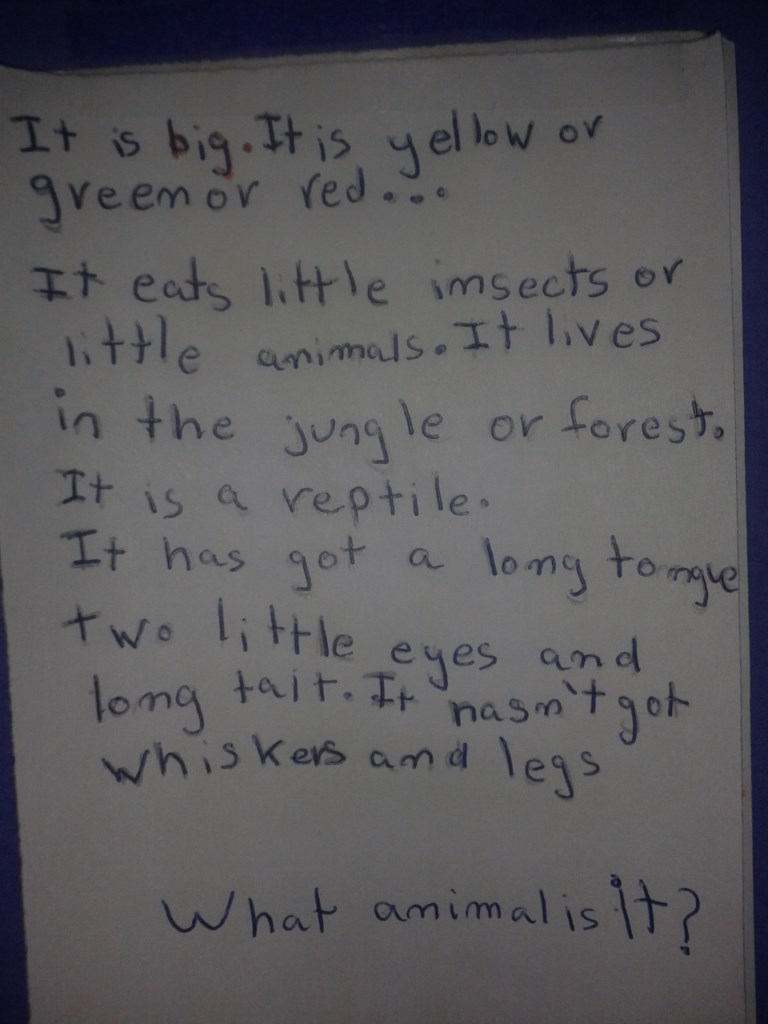 It is big. It is yellow or
green or red...
It eats little imsects or
little animals. It lives
in the jungle or forest.
It is a reptile.
It has got a long tongue
two little eyes and
long tait. It hasn't got
whiskers and legs
What animal is it?